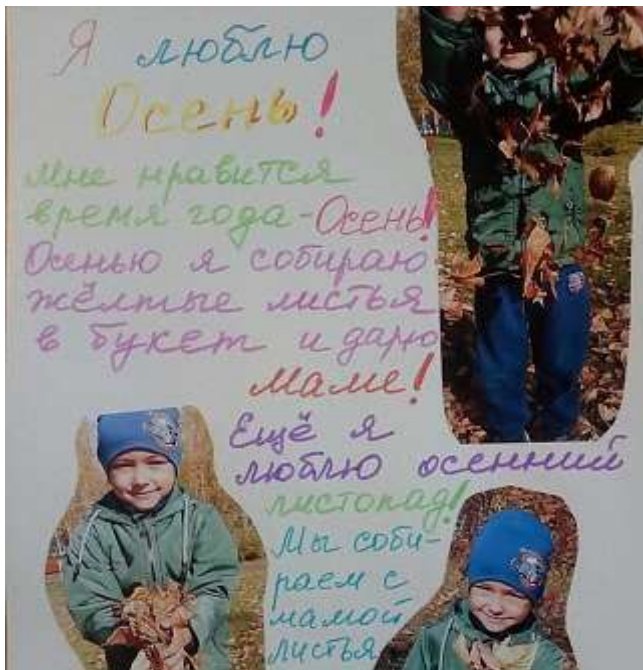 Я люблю
Осень!
Мне нравится
время года - Осень!
Осенью я собираю
жёлтые листья
в букет и дарю
маме!
Ещё я
люблю осенний
листопад!
Мы соби-
раем с
мамой
листья